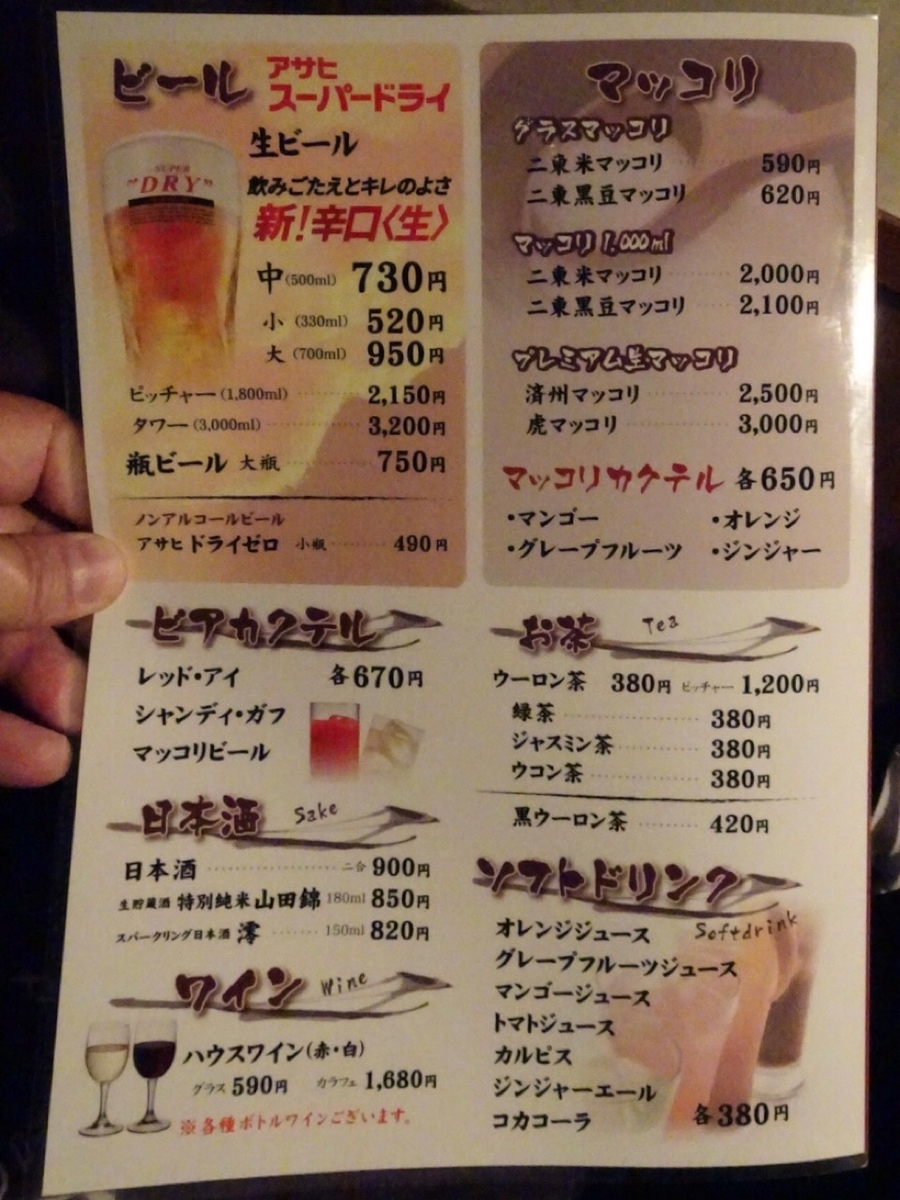 ビール アサヒ
スーパードライ
生ビール
SUPER
"DRY"
飲みごたえとキレのよさ
新!辛口〈生〉
中(500ml) 730円
小 (330ml) 520円
大 (700ml) 950円
ピッチャー(1,800ml) 2,150円
タワー(3,000ml) 3,200円
瓶ビール 大瓶 750円
ノンアルコールビール
アサヒ ドライゼロ 小瓶 490円
マッコリ
グラスマッコリ
二東米マッコリ 590円
二東黒豆マッコリ 620円
マッコリ 1,000ml
二東米マッコリ 2,000円
二東黒豆マッコリ 2,100円
プレミアム生マッコリ
済州マッコリ 2,500円
虎マッコリ 3,000円
マッコリカクテル 各650円
・マンゴー ・オレンジ
・グレープフルーツ ・ジンジャー
ビアカクテル
レッド・アイ 各670円
シャンディ・ガフ
マッコリビール
日本酒 Sake
日本酒 二合 900円
生貯蔵酒 特別純米 山田錦 180ml 850円
スパークリング日本酒 澪 150ml 820円
ワイン Wine
ハウスワイン(赤・白)
グラス 590円 カラフェ 1,680円
※各種ボトルワインございます。
お茶 Tea
ウーロン茶 380円 ピッチャー 1,200円
緑茶 380円
ジャスミン茶 380円
ウコン茶 380円
黒ウーロン茶 420円
ソフトドリンク
Softdrink
オレンジジュース
グレープフルーツジュース
マンゴージュース
トマトジュース
カルピス
ジンジャーエール
コカコーラ 各380円